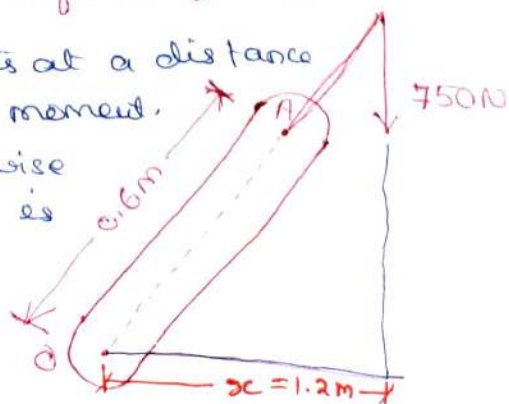 s at a distance
moment.
wise
is
A
750N
0.6m
O
x = 1.2m